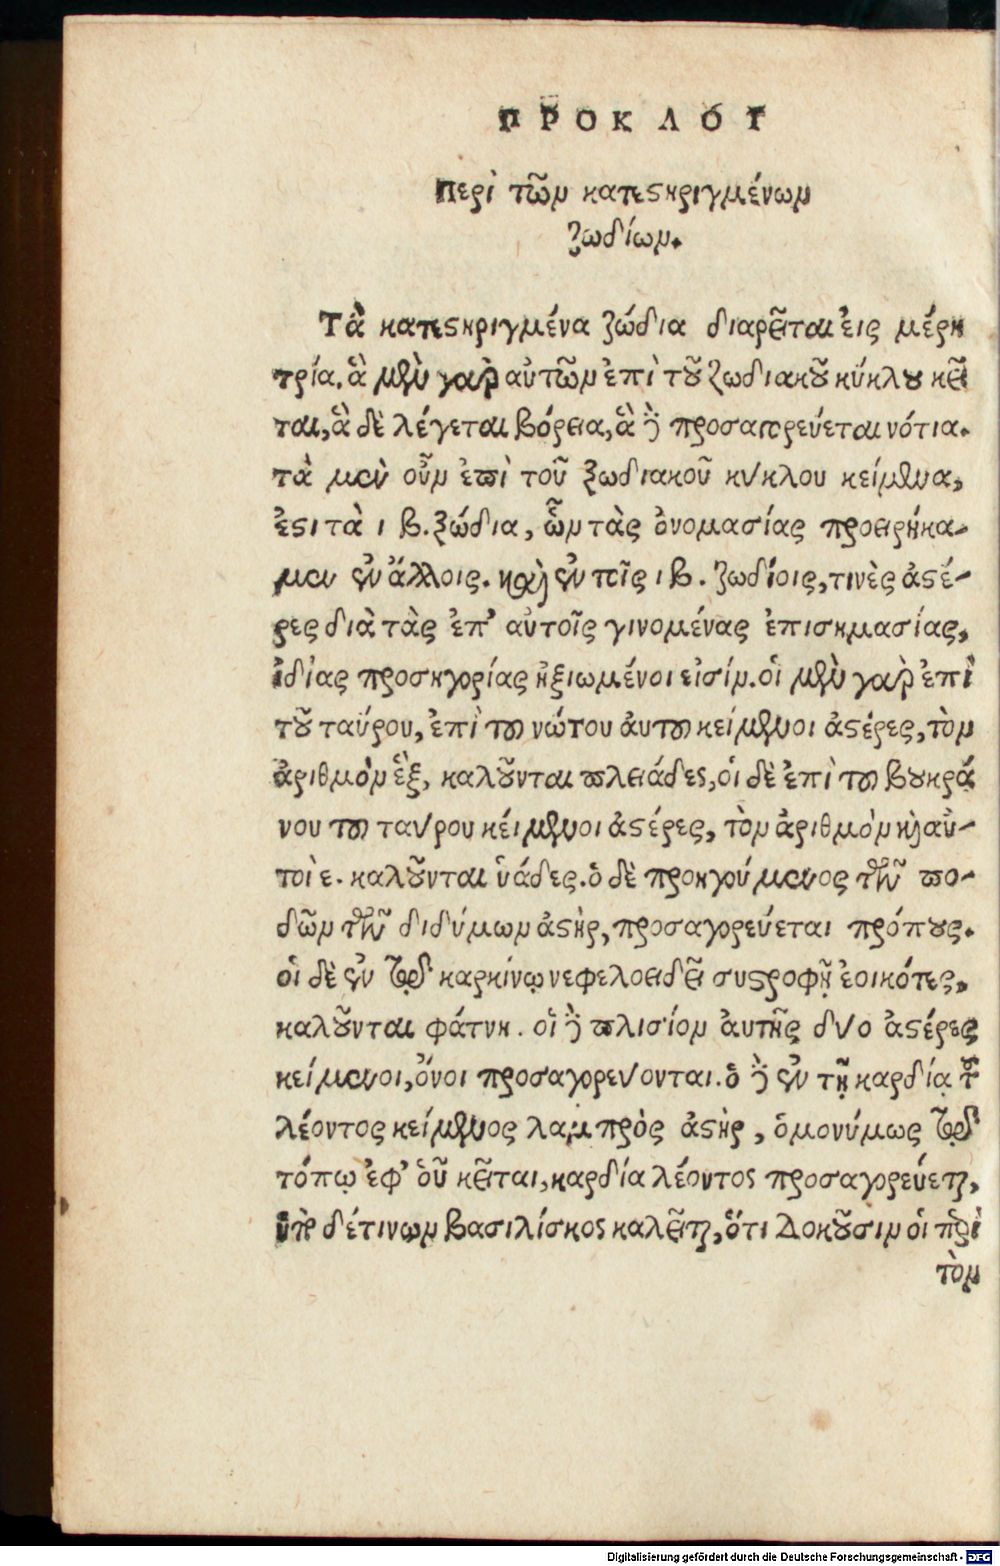 ΠΡΟΚΛΟΥ
Περὶ τῶν κατεστηριγμένων
ζωδίων.
Τὰ κατεστηριγμένα ζώδια διαρεῖται εἰς μέρη
τρία. ἃ μὲν γὰρ αὐτῶν ἐπὶ τοῦ ζωδιακοῦ κύκλου κεῖ
ται, ἃ δὲ λέγεται βόρεια, ἃ δὲ προσαγορεύεται νότια.
τὰ μὲν οὖν ἐπὶ τοῦ ζωδιακοῦ κύκλου κείμενα,
ἐστι τὰ ιβ. ζώδια, ὧν τὰς ὀνομασίας προειρήκα-
μεν ἐν ἄλλοις. καὶ ἐν τοῖς ιβ. ζωδίοις, τινὲς ἀστέ-
ρες διὰ τὰς ἐπ' αὐτοῖς γινομένας ἐπισημασίας,
ἰδίας προσηγορίας ἠξιωμένοι εἰσίν. οἱ μὲν γὰρ ἐπὶ
τοῦ ταύρου, ἐπὶ τοῦ νώτου ἀυτοῦ κείμενοι ἀστέρες, τὸν
ἀριθμὸν ἓξ, καλοῦνται πλειάδες, οἱ δὲ ἐπὶ τοῦ βουκρά
νου τοῦ ταύρου κείμενοι ἀστέρες, τὸν ἀριθμὸν καὶ αὐ-
τοὶ ε. καλοῦνται ὑάδες. ὁ δὲ προηγούμενος τῶν πο-
δῶν τῶν διδύμων ἀστὴρ, προσαγορεύεται πρόπους.
οἱ δὲ ἐν τῷ καρκίνῳ νεφελοειδεῖ συστροφῇ ἐοικότες,
καλοῦνται φάτνη. οἱ δὲ πλισίον ἀυτῆς δύο ἀστέρες
κείμενοι, ὄνοι προσαγορεύονται. ὁ δὲ ἐν τῇ καρδίᾳ τοῦ
λέοντος κείμενος λαμπρὸς ἀστὴρ, ὁμονύμως τῷ
τόπῳ ἐφ' οὗ κεῖται, καρδία λέοντος προσαγορεύεται,
ὑπὸ δέ τινων βασιλίσκος καλεῖται, ὅτι δοκοῦσιν οἱ περὶ
τὸν
Digitalisierung gefördert durch die Deutsche Forschungsgemeinschaft - DFG